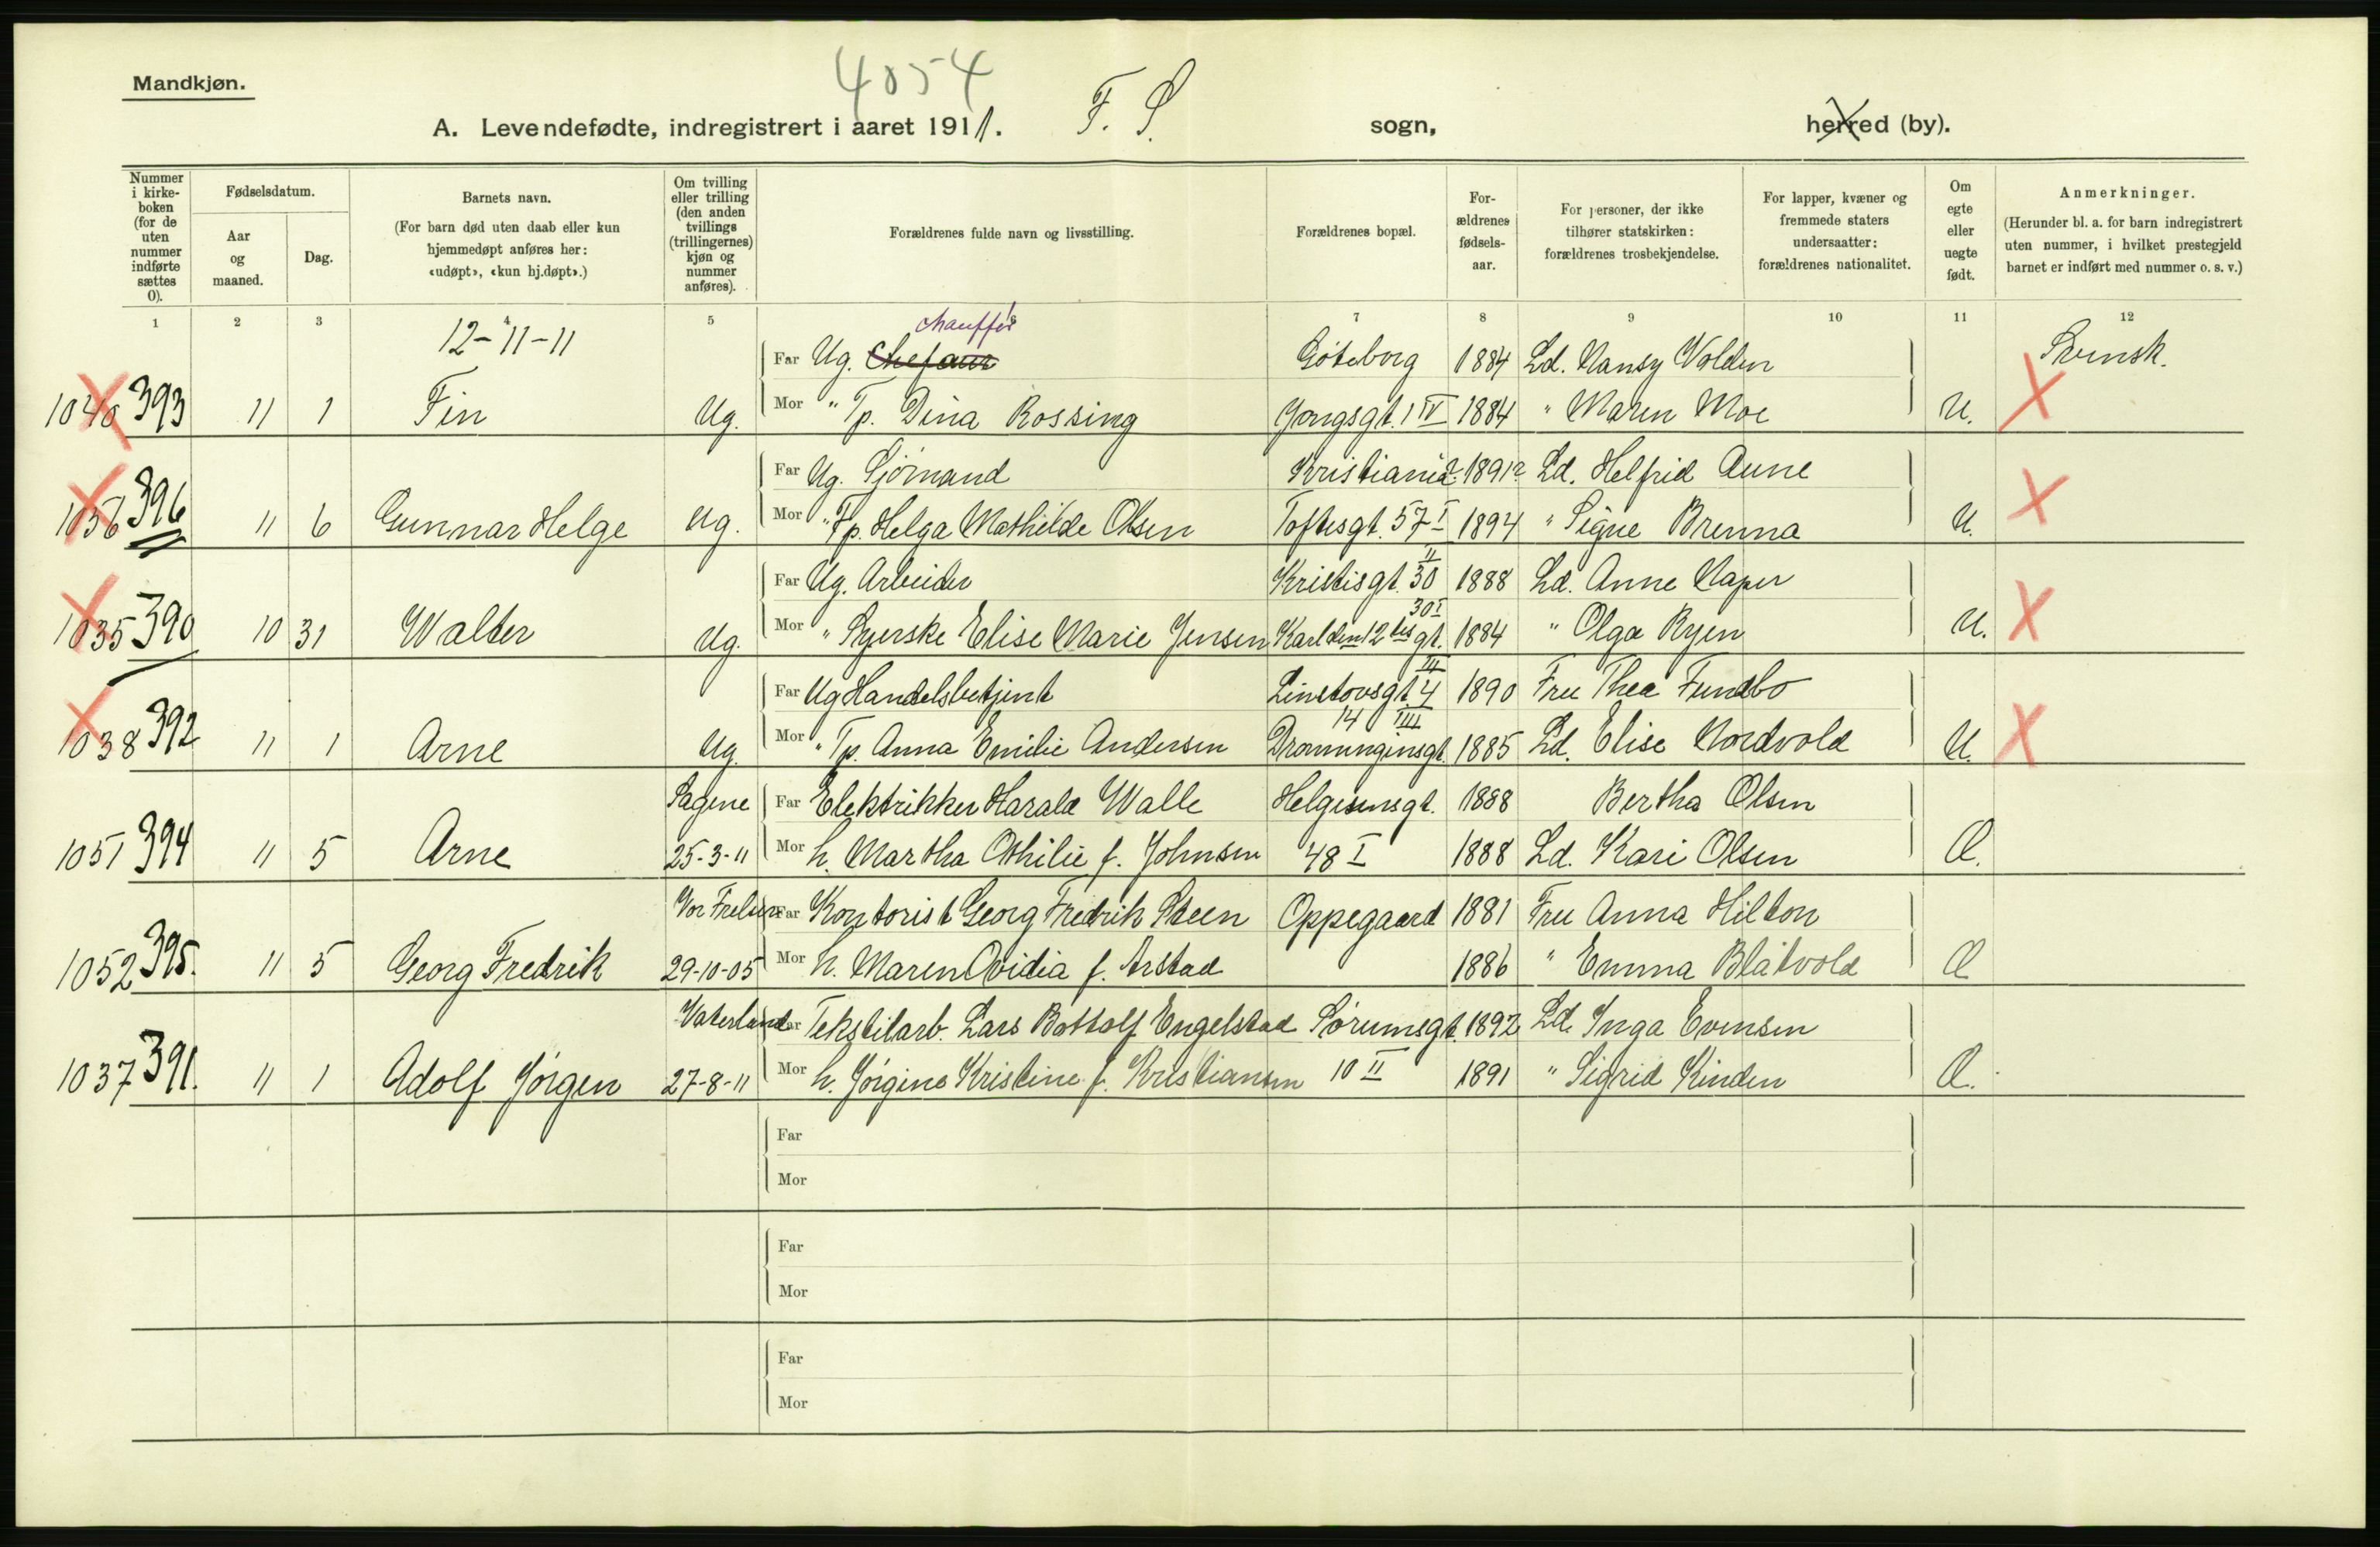 4054
Mandkjøn.
A. Levendefødte, indregistrert i aaret 1911. F. S. sogn, herred (by).
Nummer i kirkeboken (for de uten nummer indførte sættes 0).
Fødselsdatum.
Aar og maaned.
Dag.
Barnets navn.
(For barn død uten daab eller kun hjemmedøpt anføres her: «udøpt», «kun hj.døpt».)
Om tvilling eller trilling (den anden tvillings (trillingernes) kjøn og nummer anføres).
Forældrenes fulde navn og livsstilling.
Forældrenes bopæl.
Forældrenes fødselsaar.
For personer, der ikke tilhører statskirken: forældrenes trosbekjendelse.
For lapper, kvæner og fremmede staters undersaatter: forældrenes nationalitet.
Om egte eller uegte født.
Anmerkninger.
(Herunder bl. a. for barn indregistrert uten nummer, i hvilket prestegjeld barnet er indført med nummer o. s. v.)
1 2 3 4 5 6 7 8 9 10 11 12
12-11-11
chauffør
Far Ug. Göteborg 1884 Ld. Nansy Volden Svensk.
1040 393 11 1 Fin Ug. Mor " Tp. Dina Rossing Yongsgt. 1 IV 1884 " Maren Moe U.
Far Ug. Sjömand Kristiania 1891? Ld. Helfrid Aune
1056 396 11 6 Gunnar Helge Ug. Mor " Fp. Helga Mathilde Olsen Toftesgt. 57 I 1894 " Signe Brenna U.
Far Ug. Arbeider Kristisgt. 30 II 1888 Ld. Anne Naper
1035 390 10 31 Walter Ug. Mor " Syerske Elise Marie Jensen Karl den 12tes gt. 30 I 1884 " Olga Ryen U.
Far Ug Handelsbetjent Linstowsgt. 4 III 1890 Fru Thea Fundbo
1038 392 11 1 Arne Ug. Mor " Tp. Anna Emilie Andersen Dronningensgt. 14 III 1885 Ld. Elise Nordvold U.
Sagene Far Elektrikker Harald Walle Helgesensgt. 1888 Bertha Olsen
1051 394 11 5 Arne 25-3-11 Mor h. Martha Othilie f. Johnsen 48 I 1888 Ld. Kari Olsen Æ.
Vor Frelser Far Kontorist Georg Fredrik Steen Oppegaard 1881 Fru Anna Hilton
1052 395. 11 5 Georg Fredrik 29-10-05 Mor h. Maren Ovidia f. Arstad 1886 " Emma Blåtvold Æ
Vaterland Far Tekstilarb. Lars Bottolf Engelstad Sörumsgt. 1892 Ld. Inga Evensen
1037 391. 11 1 Adolf Jörgen 27-8-11 Mor h. Jörgine Kristine f. Kristiansen 10 II 1891 " Sigrid Kinden Æ.
Far
Mor
Far
Mor
Far
Mor